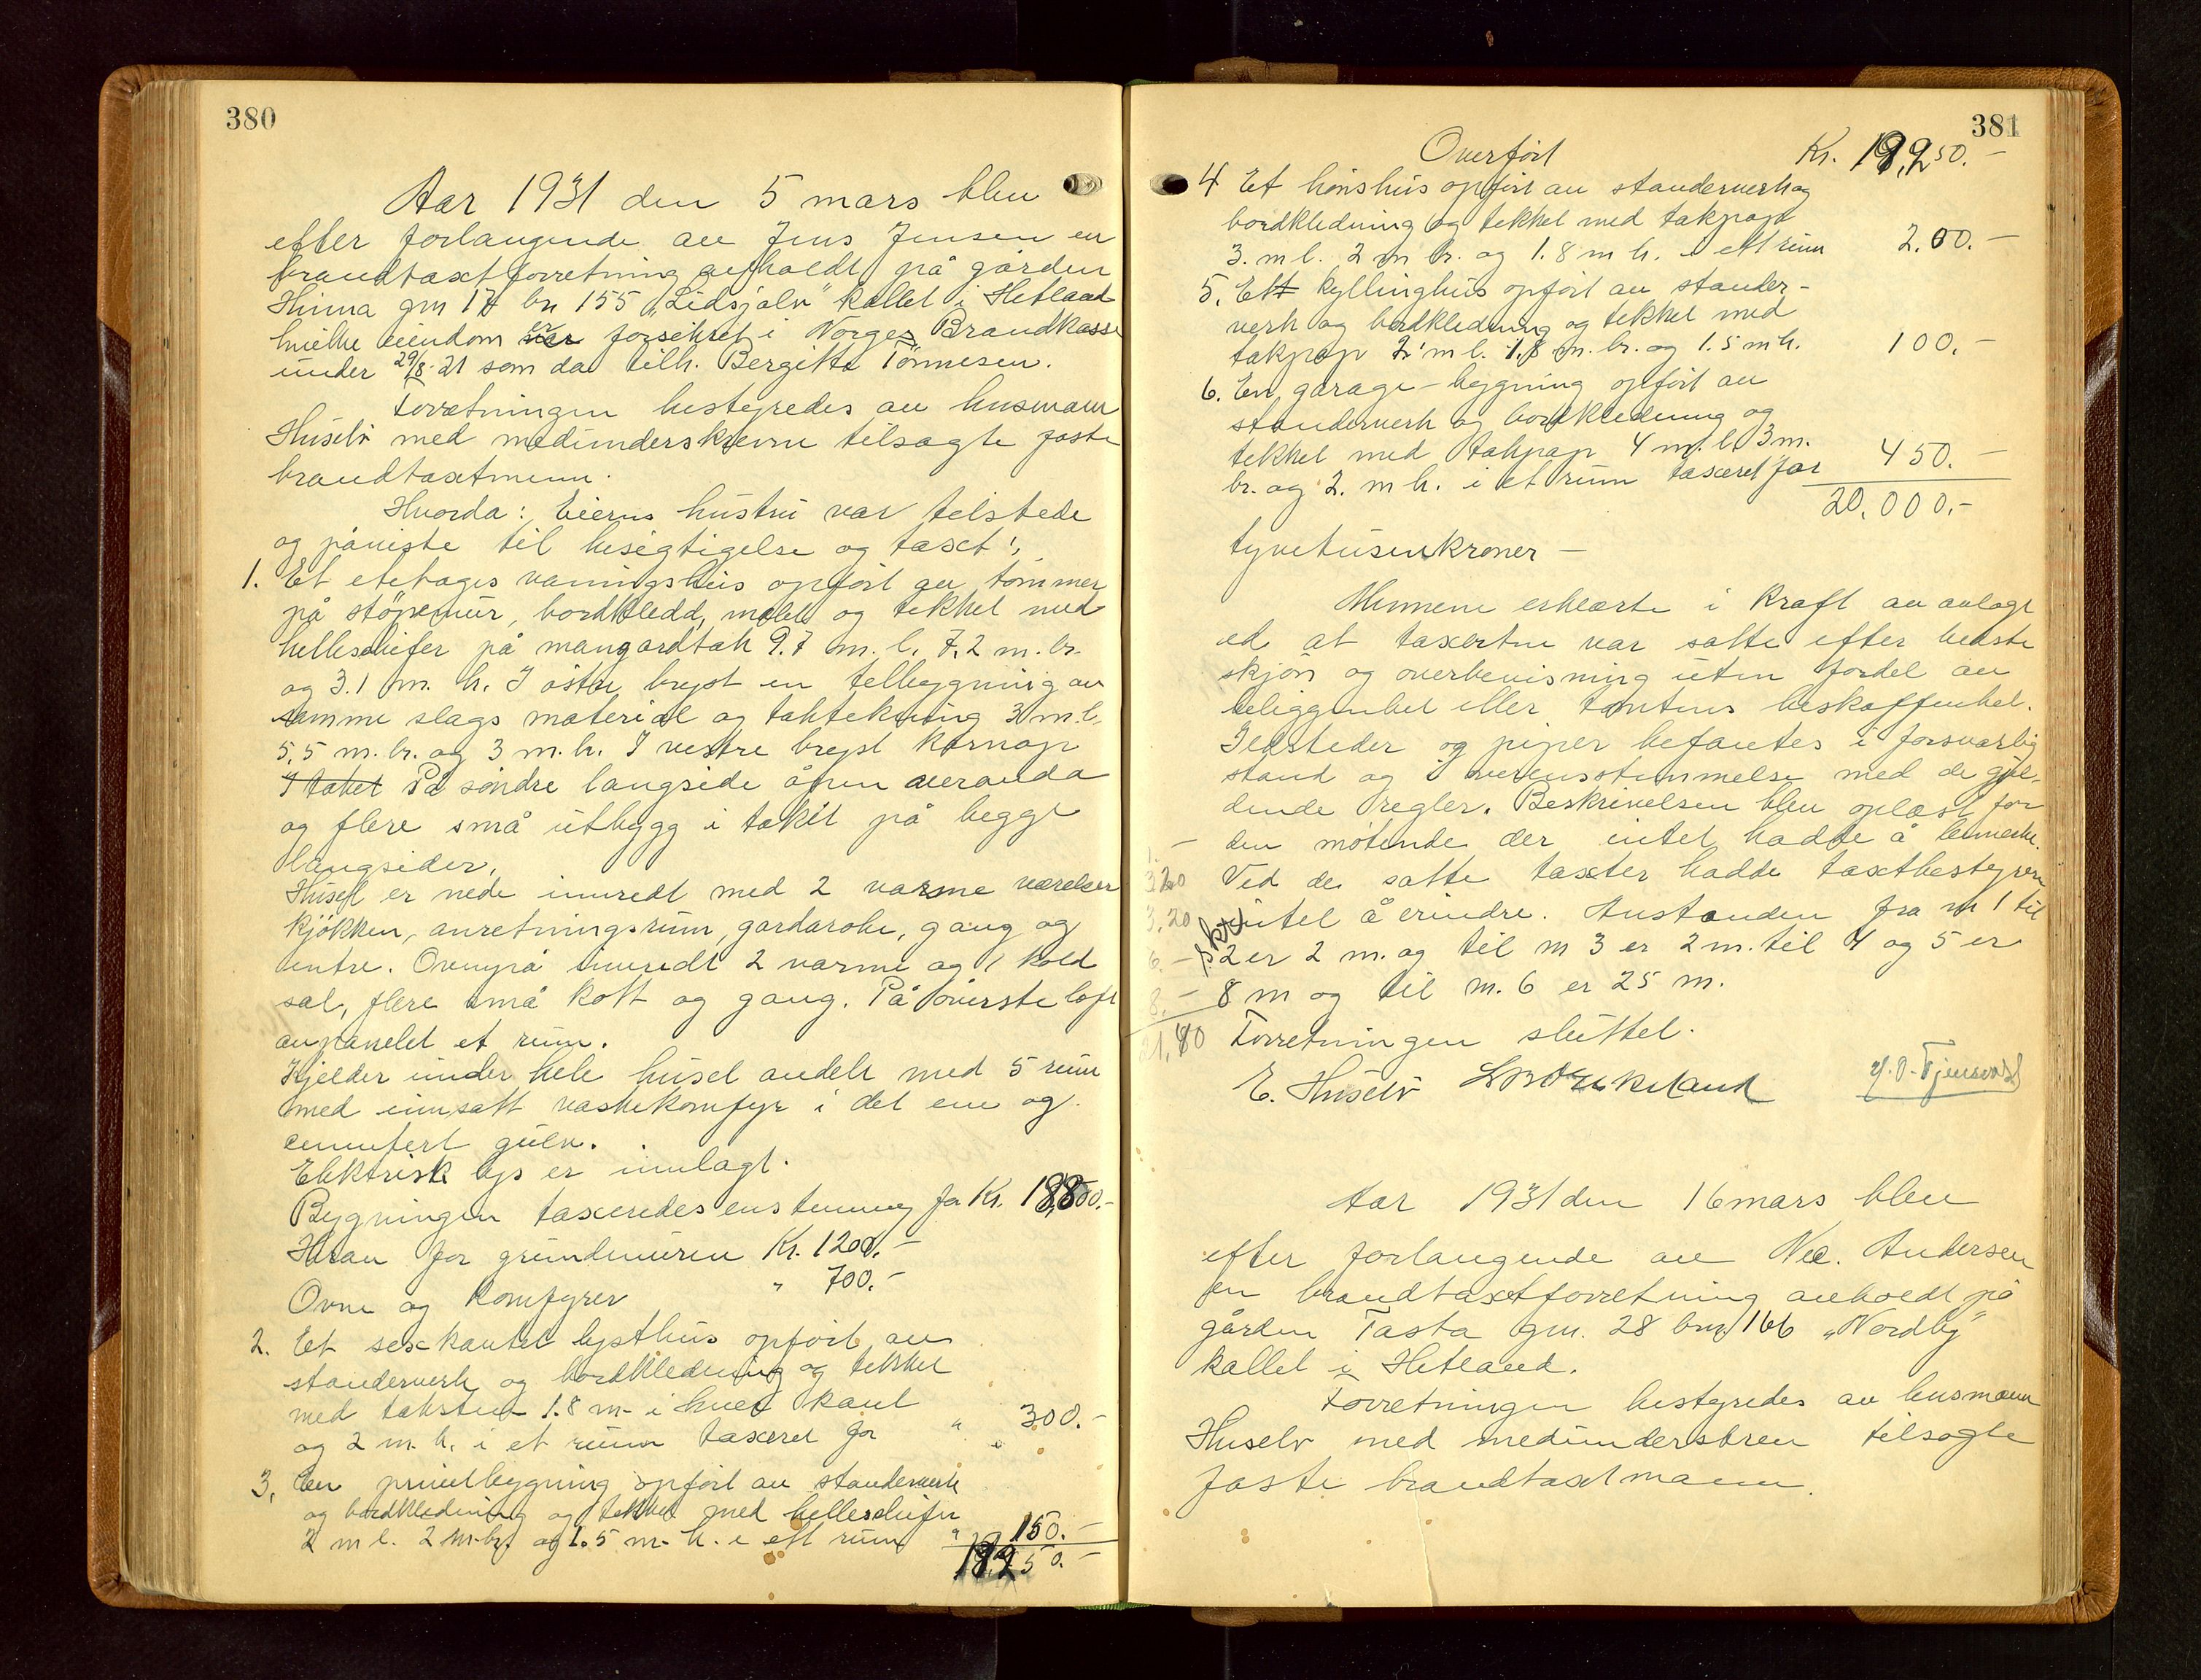 380
Aar 1931 den 5 mars blev
efter forlangende av Jens Jensen en
brandtaxtforretning avholdt på gården
Hinna gnr 17 bn 155 „Lidsjølv" kallet i Hetland
hvilke eiendom er forsikret i Norges Brandkasse
under 29/8-21 som da tilh. Bergitte Tönnesen.
Forretningen bestyredes av lensmann
Husebø med medunderskrevne tilsagte faste
brandtaxtmenn.
Hvorda: Eierens hustru var tilstede
og påviste til besigtigelse og taxt:
1. Et etetages våningshus opført av tømmer
på støpemur, bordkledd, malt og tekket med
helleskifer på mangardtak 9.7 m. l. 7.2 m. br.
og 3.1 m. h. I østre bryst en tilbygning av
samme slags material og taktekning 3 m. l.
5,5 m. br. og 3 m. h. I vestre bryst karnap
I taket På söndre langside åpen veranda
og flere små utbygg i taket på begge
langsider.
Huset er nede innredt med 2 varme værelser
kjökken, anretningsrum, gardarobe, gang og
entre. Ovenpå innredt 2 varme og 1 kold
sal, flere små kott og gang. På øverste loft
avpanelet et rum.
Kjelder under hele huset avdelt med 5 rum
med innsatt vaskekomfyr i det ene og
cementert gulv.
Elektrisk lys er innlagt.
Bygningen taxeredes enstemmig for Kr. 18,800.-
Herav for grundmuren Kr. 1200.-
Ovne og komfyrer " 700.-
2. Et sexkantet lysthus opført av
standerverk og bordkledning og tekket
med taksten 1.8 m. i hver kant
og 2 m. h. i et rum taxeret for " 300.-
3. En privetbygning opført av standerverk
og bordkledning og tekket med helleskifer
2 m l. 2 m. br. og 1.5 m. h. i ett rum " 150.-
19,250.-
381
Overført Kr. 19,250.-
4 Et hönshus opført av standerverk og
bordkledning og tekket med takpap
3. m l. 2 m br. og 1.8 m h. i ett rum 200.-
5. Ett kyllinghus opført av stander-
verk og bordkledning og tekket med
takpap 2. m l. 1,8 m. br. og 1.5 m h. 100.-
6. En garage-bygning opført av
standerverk og bordkledning og
tekket med takpap 4 m. l. 3 m.
br. og 2. m h. i et rum taxeret for 450.-
20.000.-
tyvetusenkroner -
Mennene erklærte i kraft av avlagt
ed at taxterne var satte efter bedste
skjøn og overbevisning uten fordel av
beliggenhet eller tomtens beskaffenhet.
Ildsteder og piper befantes i forsvarlig
stand og i overensstemmelse med de gjel-
dende regler. Beskrivelsen blev oplæst for
den møtende der intet hadde å bemerke.
Ved de satte taxter hadde taxtbestyreren
intet å erindre. Avstanden fra nr 1 til
2 er 2 m. og til nr 3 er 2 m. til 4 og 5 er
8 m og til nr. 6 er 25 m.
Forretningen sluttet.
3,20
6.-
8.-
E. Husebø
Aar 1931 den 16 mars blev
efter forlangende av Nic. Andersen
en brandtaxtforretning avholdt på
gården Tasta gnr. 28 bnr 166 „Nordby"
kallet i Hetland.
Forretningen bestyredes av lensmann
Husebø med medunderskren tilsagte
faste brandtaxtmann.